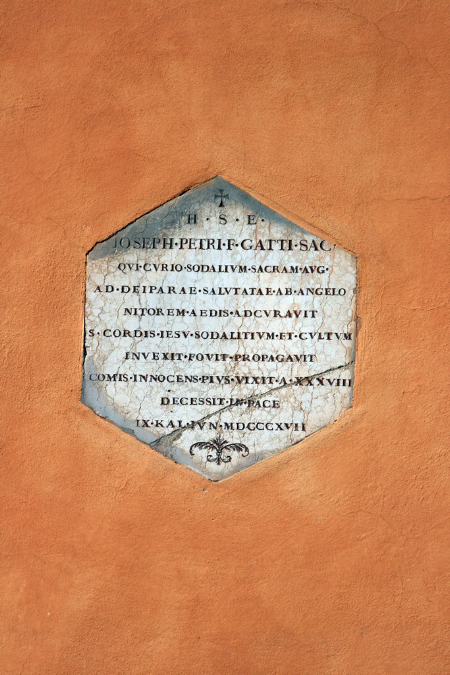 H·S·E·
IOSEPH·PETRI·F·GATTI·SAC·
QVI·CVRIO·SODALIVM·SACRAM·AVG·
AD·DEIPARAE·SALVTATAE·AB·ANGELO
NITOREM·AEDIS·ADCVRAVIT
S·CORDIS·IESV·SODALITIVM·ET·CVLTVM
INVEXIT·FOVIT·PROPAGAVIT
COMIS·INNOCENS·PIVS·VIXIT·A·XXXVIII
DECESSIT·IN·PACE
IX·KAL·IVN·MDCCCXVII